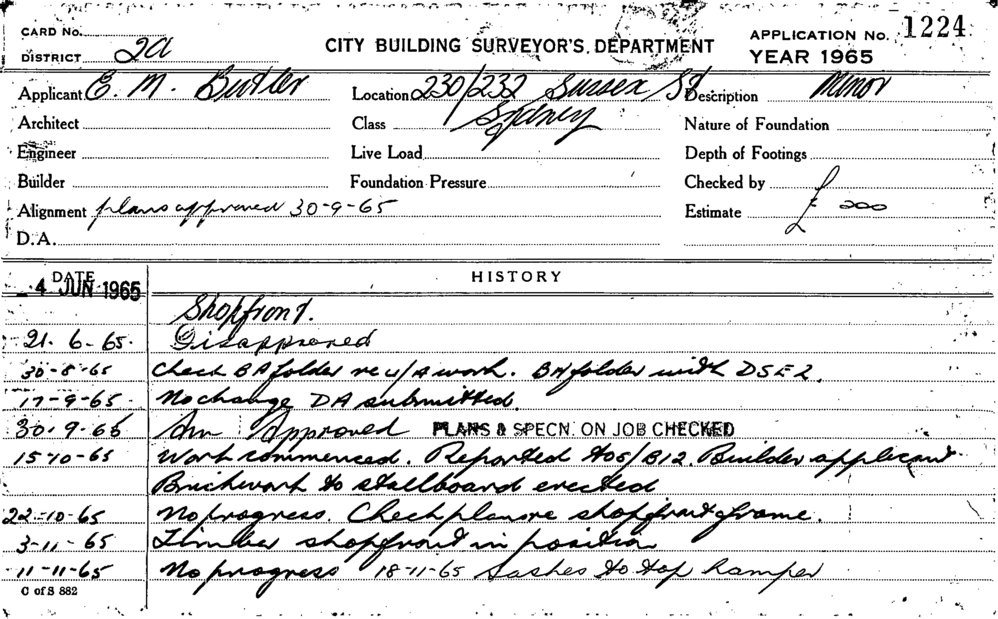 CARD No.
DISTRICT 2a
CITY BUILDING SURVEYOR'S DEPARTMENT
APPLICATION No. 1224
YEAR 1965
Applicant E. M. Butler
Location 230/232 Sussex St
Sydney
Description Minor
Architect
Class
Nature of Foundation
Engineer
Live Load
Depth of Footings
Builder
Foundation Pressure
Checked by
Alignment plans approved 30-9-65
Estimate £ 200
D.A.
DATE
HISTORY
4 JUN 1965
Shopfront.
21. 6-65. Disapproved
30-8-65 Check BA folder re u/a work. BA folder with DSE2.
17-9-65 No change DA submitted.
30.9-65 Am Approved PLANS & SPECN. ON JOB CHECKED
15-10-65 Work commenced. Reported Builder applicant
Brickwork to stallboard erected
22-10-65 No progress. Check plans re shopfront frame.
3-11-65 Timber shopfront in position
11-11-65 No progress 18-11-65 Sashes to top hamper
C of S 882